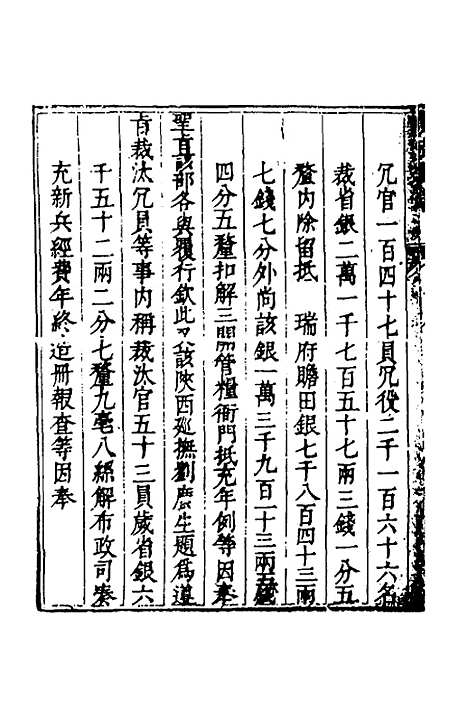 冗官一百四十七員冗役二千一百六十六名
裁省銀二萬一千七百五十七兩三錢一分五
釐內除留抵　瑞府贍田銀七千八百四十三兩
七錢七分外尚該銀一萬三千九百一十三兩五錢
四分五釐扣解三關管糧衙門抵充年例等因奉
聖旨該部各與覆行欽此又該陝西廵撫劉廣生題為遵
旨裁汰冗員等事內稱裁汰官五十三員歲省銀六
千五十二兩二分七釐九毫八絲解布政司湊
充新兵經費年終造冊報查等因奉